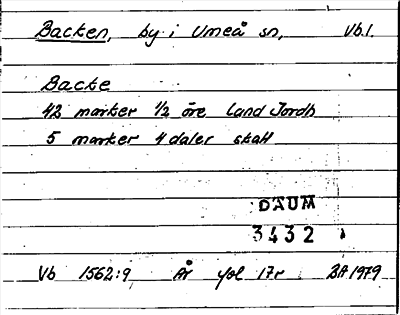 Backen, by i Umeå sn, Vb.l.
Backe
42 marker 1/2 öre land Jordh
5 marker 4 daler skatt
DAUM
3432
Vb 1562:9 År fol 17r BA 1979